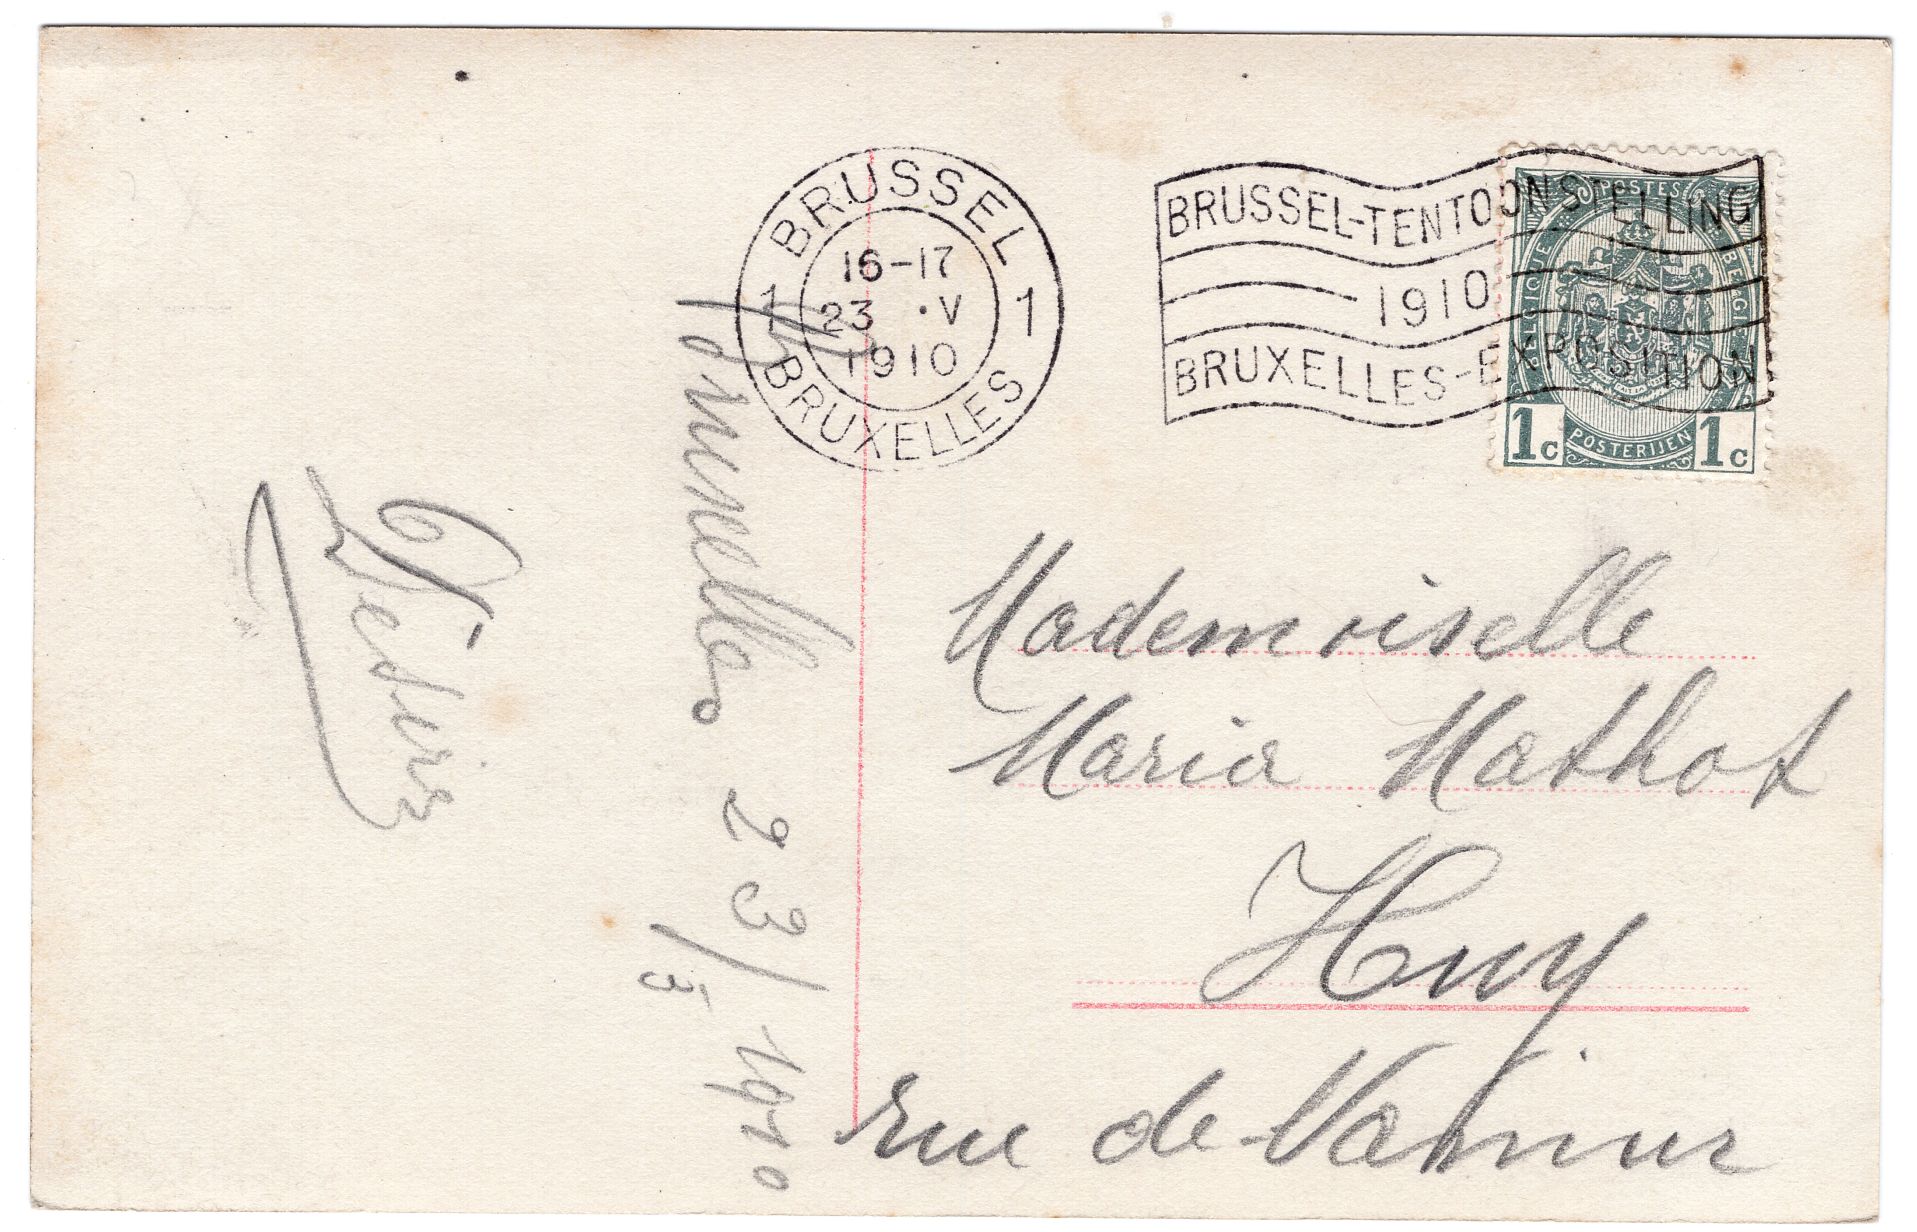 BRUSSEL
1 16-17 1
23 · V
1910
BRUXELLES
BRUSSEL-TENTOONSTELLING
1910
BRUXELLES-EXPOSITION
POSTES
BELGIQUE BELGIË
1c POSTERIJEN 1c
Bruxelles 23/5 1910
Désiré
Mademoiselle
Maria Mathot
Huy
rue de Namur